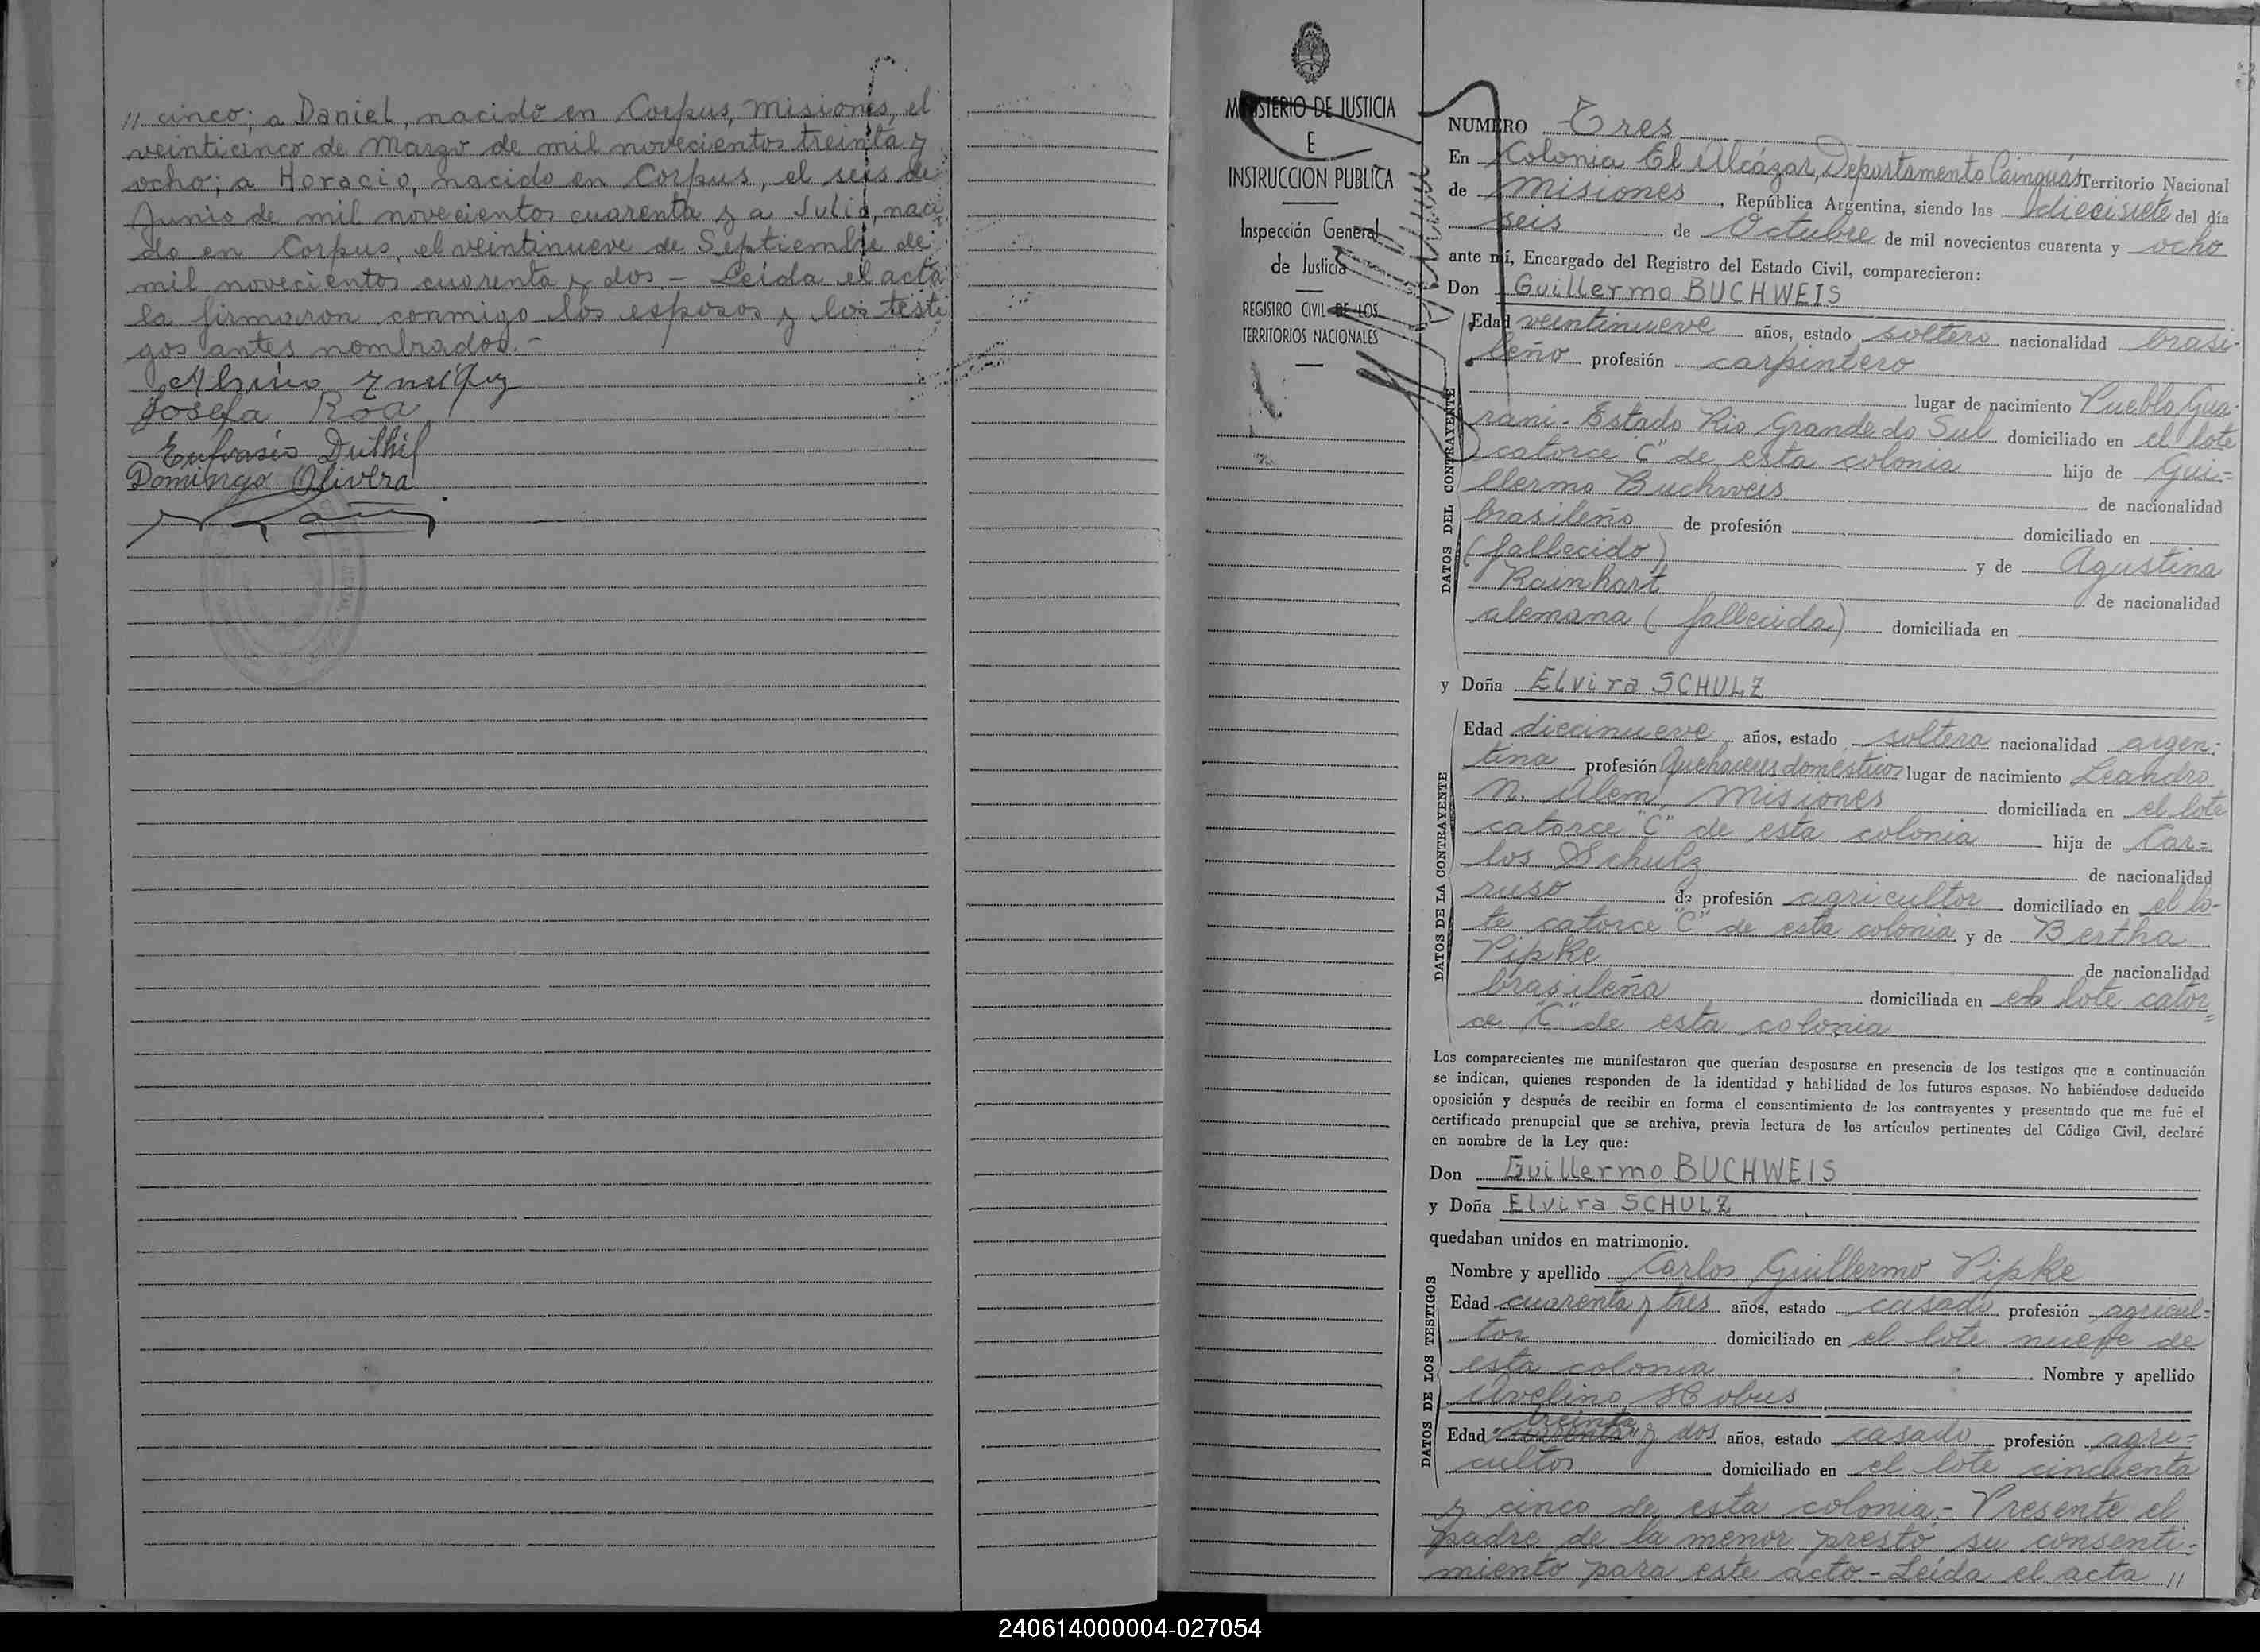 // cinco; a Daniel, nacido en Corpus, Misiones, el
veinticinco de Marzo de mil novecientos treinta y
ocho; a Horacio, nacido en Corpus, el seis de
Junio de mil novecientos cuarenta y a Julio, naci
do en Corpus, el veintinueve de Septiembre de
mil novecientos cuarenta y dos.- Leída el acta
la firmaron conmigo los esposos y los testi
gos antes nombrados.-
Josefa Roa
Eufrasio Duthil
Domingo Olivera
MINISTERIO DE JUSTICIA
E
INSTRUCCION PUBLICA
Inspección General
de Justicia
REGISTRO CIVIL DE LOS
TERRITORIOS NACIONALES
NUMERO Tres
En Colonia El Alcázar, Departamento Cainguás Territorio Nacional
de Misiones, República Argentina, siendo las diecisiete del día
seis de Octubre de mil novecientos cuarenta y ocho
ante mí, Encargado del Registro del Estado Civil, comparecieron:
Don Guillermo BUCHWEIS
DATOS DEL CONTRAYENTE
Edad veintinueve años, estado soltero nacionalidad brasi-
leño profesión carpintero
lugar de nacimiento Pueblo Gua-
rani-Estado Rio Grande do Sul domiciliado en el lote
catorce "C" de esta colonia hijo de Gui=
llermo Buchweis de nacionalidad
brasileño de profesión domiciliado en
(fallecido) y de Agustina
Rainhart de nacionalidad
alemana (fallecida) domiciliada en
y Doña Elvira SCHULZ
DATOS DE LA CONTRAYENTE
Edad diecinueve años, estado soltera nacionalidad argen-
tina profesión Quehaceres domésticos lugar de nacimiento Leandro
N. Alem, Misiones domiciliada en el lote
catorce "C" de esta colonia hija de Car=
los Schulz de nacionalidad
ruso de profesión agricultor domiciliado en el lo-
te catorce "C" de esta colonia y de Bertha
Pipke de nacionalidad
brasileña domiciliada en el lote cator
ce "C" de esta colonia
Los comparecientes me manifestaron que querían desposarse en presencia de los testigos que a continuación
se indican, quienes responden de la identidad y habilidad de los futuros esposos. No habiéndose deducido
oposición y después de recibir en forma el consentimiento de los contrayentes y presentado que me fué el
certificado prenupcial que se archiva, previa lectura de los artículos pertinentes del Código Civil, declaré
en nombre de la Ley que:
Don Guillermo BUCHWEIS
y Doña Elvira SCHULZ
quedaban unidos en matrimonio.
DATOS DE LOS TESTIGOS
Nombre y apellido Carlos Guillermo Pipke
Edad cuarenta y tres años, estado casado profesión agricul=
tor domiciliado en el lote nueve de
esta colonia Nombre y apellido
Avelino Hobus
Edad treinta y dos años, estado casado profesión agri=
cultor domiciliado en el lote cincuenta
y cinco de esta colonia.- Presente el
padre de la menor prestó su consenti-
miento para este acto.- Leída el acta //
240614000004-027054